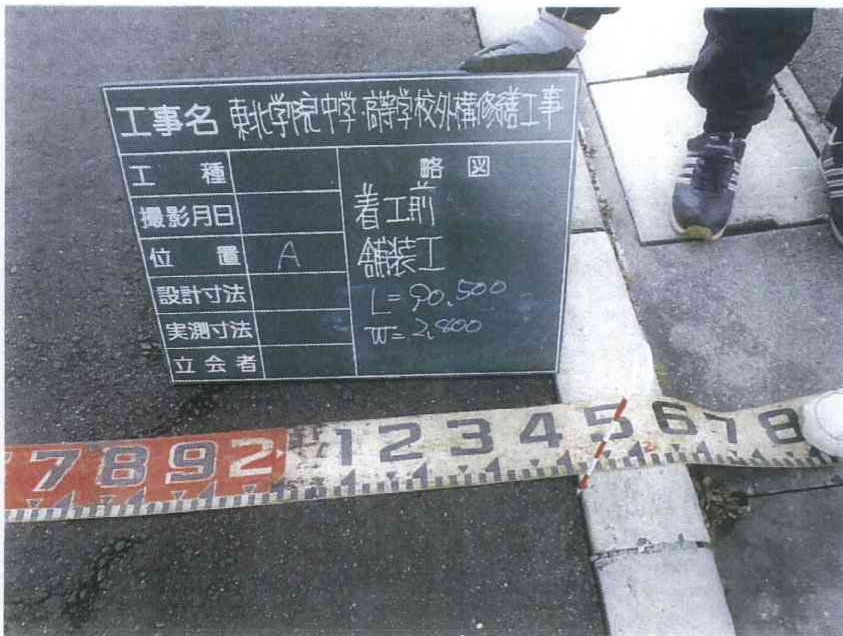 工事名 東北学院中学・高等学校外構修繕工事
工種
撮影月日
位置 A
設計寸法
実測寸法
立会者
略図
着工前
舗装工
L=90.500
W=2,800
7 8 9 2 1 2 3 4 5 6 7 8